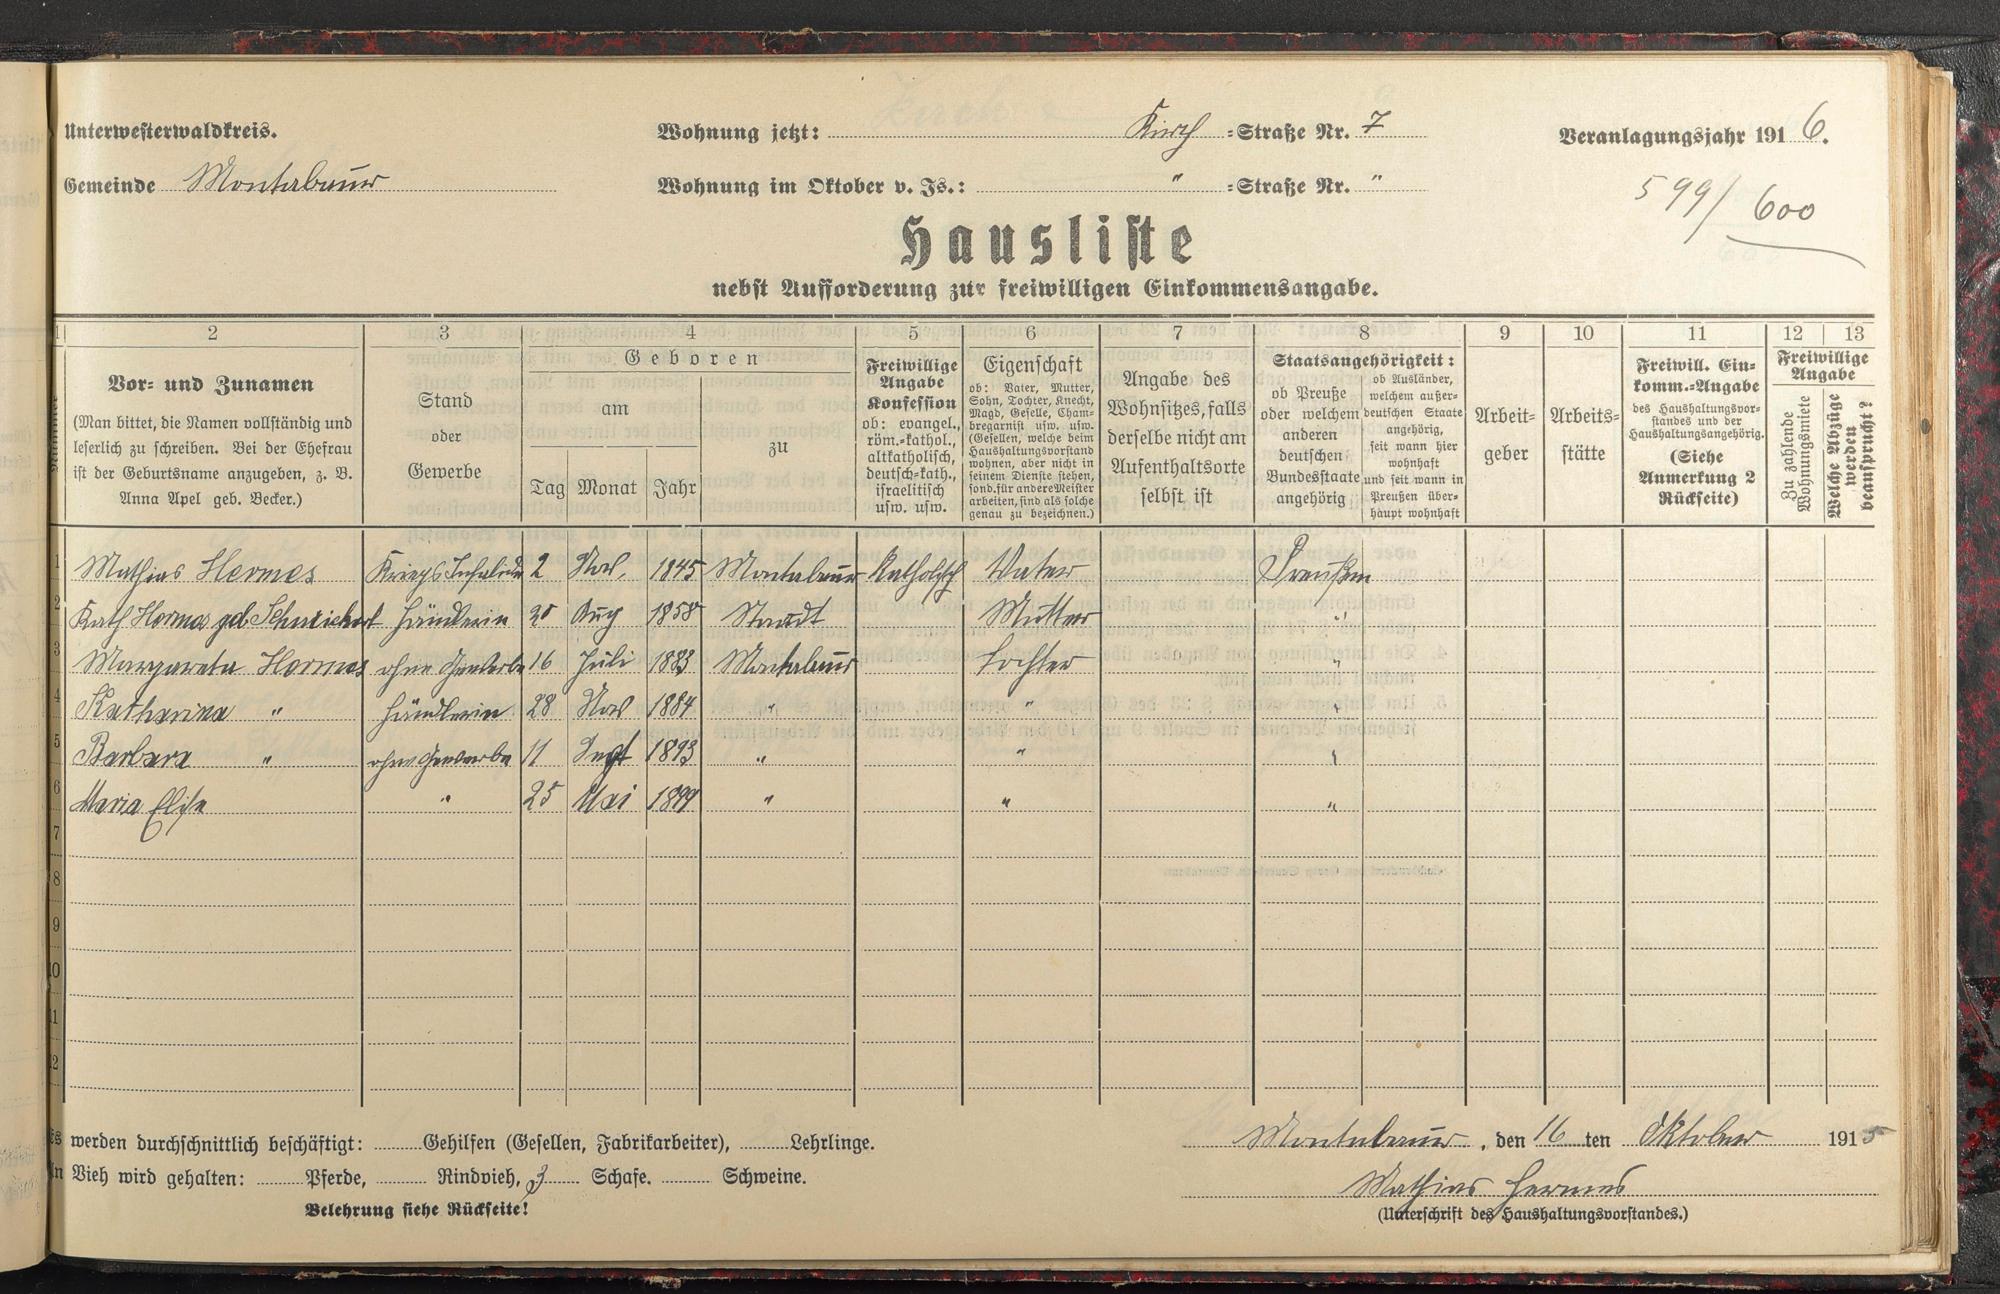 Unterwesterwaldkreis.
Wohnung jetzt: Kirch =Straße Nr. 7
Veranlagungsjahr 1916.
Gemeinde Montabaur
Wohnung im Oktober v. Js.: " =Straße Nr. "
599/600
Hausliste
nebst Aufforderung zur freiwilligen Einkommensangabe.
1 2 3 4 5 6 7 8 9 10 11 12 13
Nummer
Vor- und Zunamen
(Man bittet, die Namen vollständig und
leserlich zu schreiben. Bei der Ehefrau
ist der Geburtsname anzugeben, z. B.
Anna Apel geb. Becker.)
Stand
oder
Gewerbe
Geboren
am
Tag Monat Jahr
zu
Freiwillige
Angabe
Konfession
ob: evangel.,
röm.-kathol.,
altkatholisch,
deutsch-kath.,
israelitisch
usw. usw.
Eigenschaft
ob: Vater, Mutter,
Sohn, Tochter, Knecht,
Magd, Geselle, Cham-
bregarnist usw. usw.
(Gesellen, welche beim
Haushaltungsvorstand
wohnen, aber nicht in
seinem Dienste stehen,
sond. für andere Meister
arbeiten, sind als solche
genau zu bezeichnen.)
Angabe des
Wohnsitzes, falls
derselbe nicht am
Aufenthaltsorte
selbst ist
Staatsangehörigkeit:
ob Preuße
oder welchem
anderen
deutschen
Bundesstaate
angehörig
ob Ausländer,
welchem außer-
deutschen Staate
angehörig,
seit wann hier
wohnhaft
und seit wann in
Preußen über-
haupt wohnhaft
Arbeit-
geber
Arbeits-
stätte
Freiwill. Ein-
komm.-Angabe
des Haushaltungsvor-
standes und der
Haushaltungsangehörig.
(Siehe
Anmerkung 2
Rückseite)
Freiwillige
Angabe
Zu zahlende
Wohnungsmiete
Welche Abzüge
werden
beansprucht?
1 Mathias Hermes Kriegs Invalide 2 Nov. 1845 Montabaur Katholisch Vater Preußen
2 Kath Hermes geb. Händlerin 25 Aug 1858 Staudt Mutter "
3 Margareta Hermes ohne Gewerbe 16 Juli 1883 Montabaur Tochter "
4 Katharina " Händlerin 28 Nov 1884 " " "
5 Barbara " ohne Gewerbe 11 Sept 1893 " " "
6 Maria Elise " 25 Mai 1899 " " "
7
8
9
10
11
12
Es werden durchschnittlich beschäftigt: Gehilfen (Gesellen, Fabrikarbeiter), Lehrlinge.
Montabaur, den 16 ten Oktober 1915
An Vieh wird gehalten: Pferde, Rindvieh, 3 Schafe. Schweine.
Mathias Hermes
Belehrung siehe Rückseite!
(Unterschrift des Haushaltungsvorstandes.)